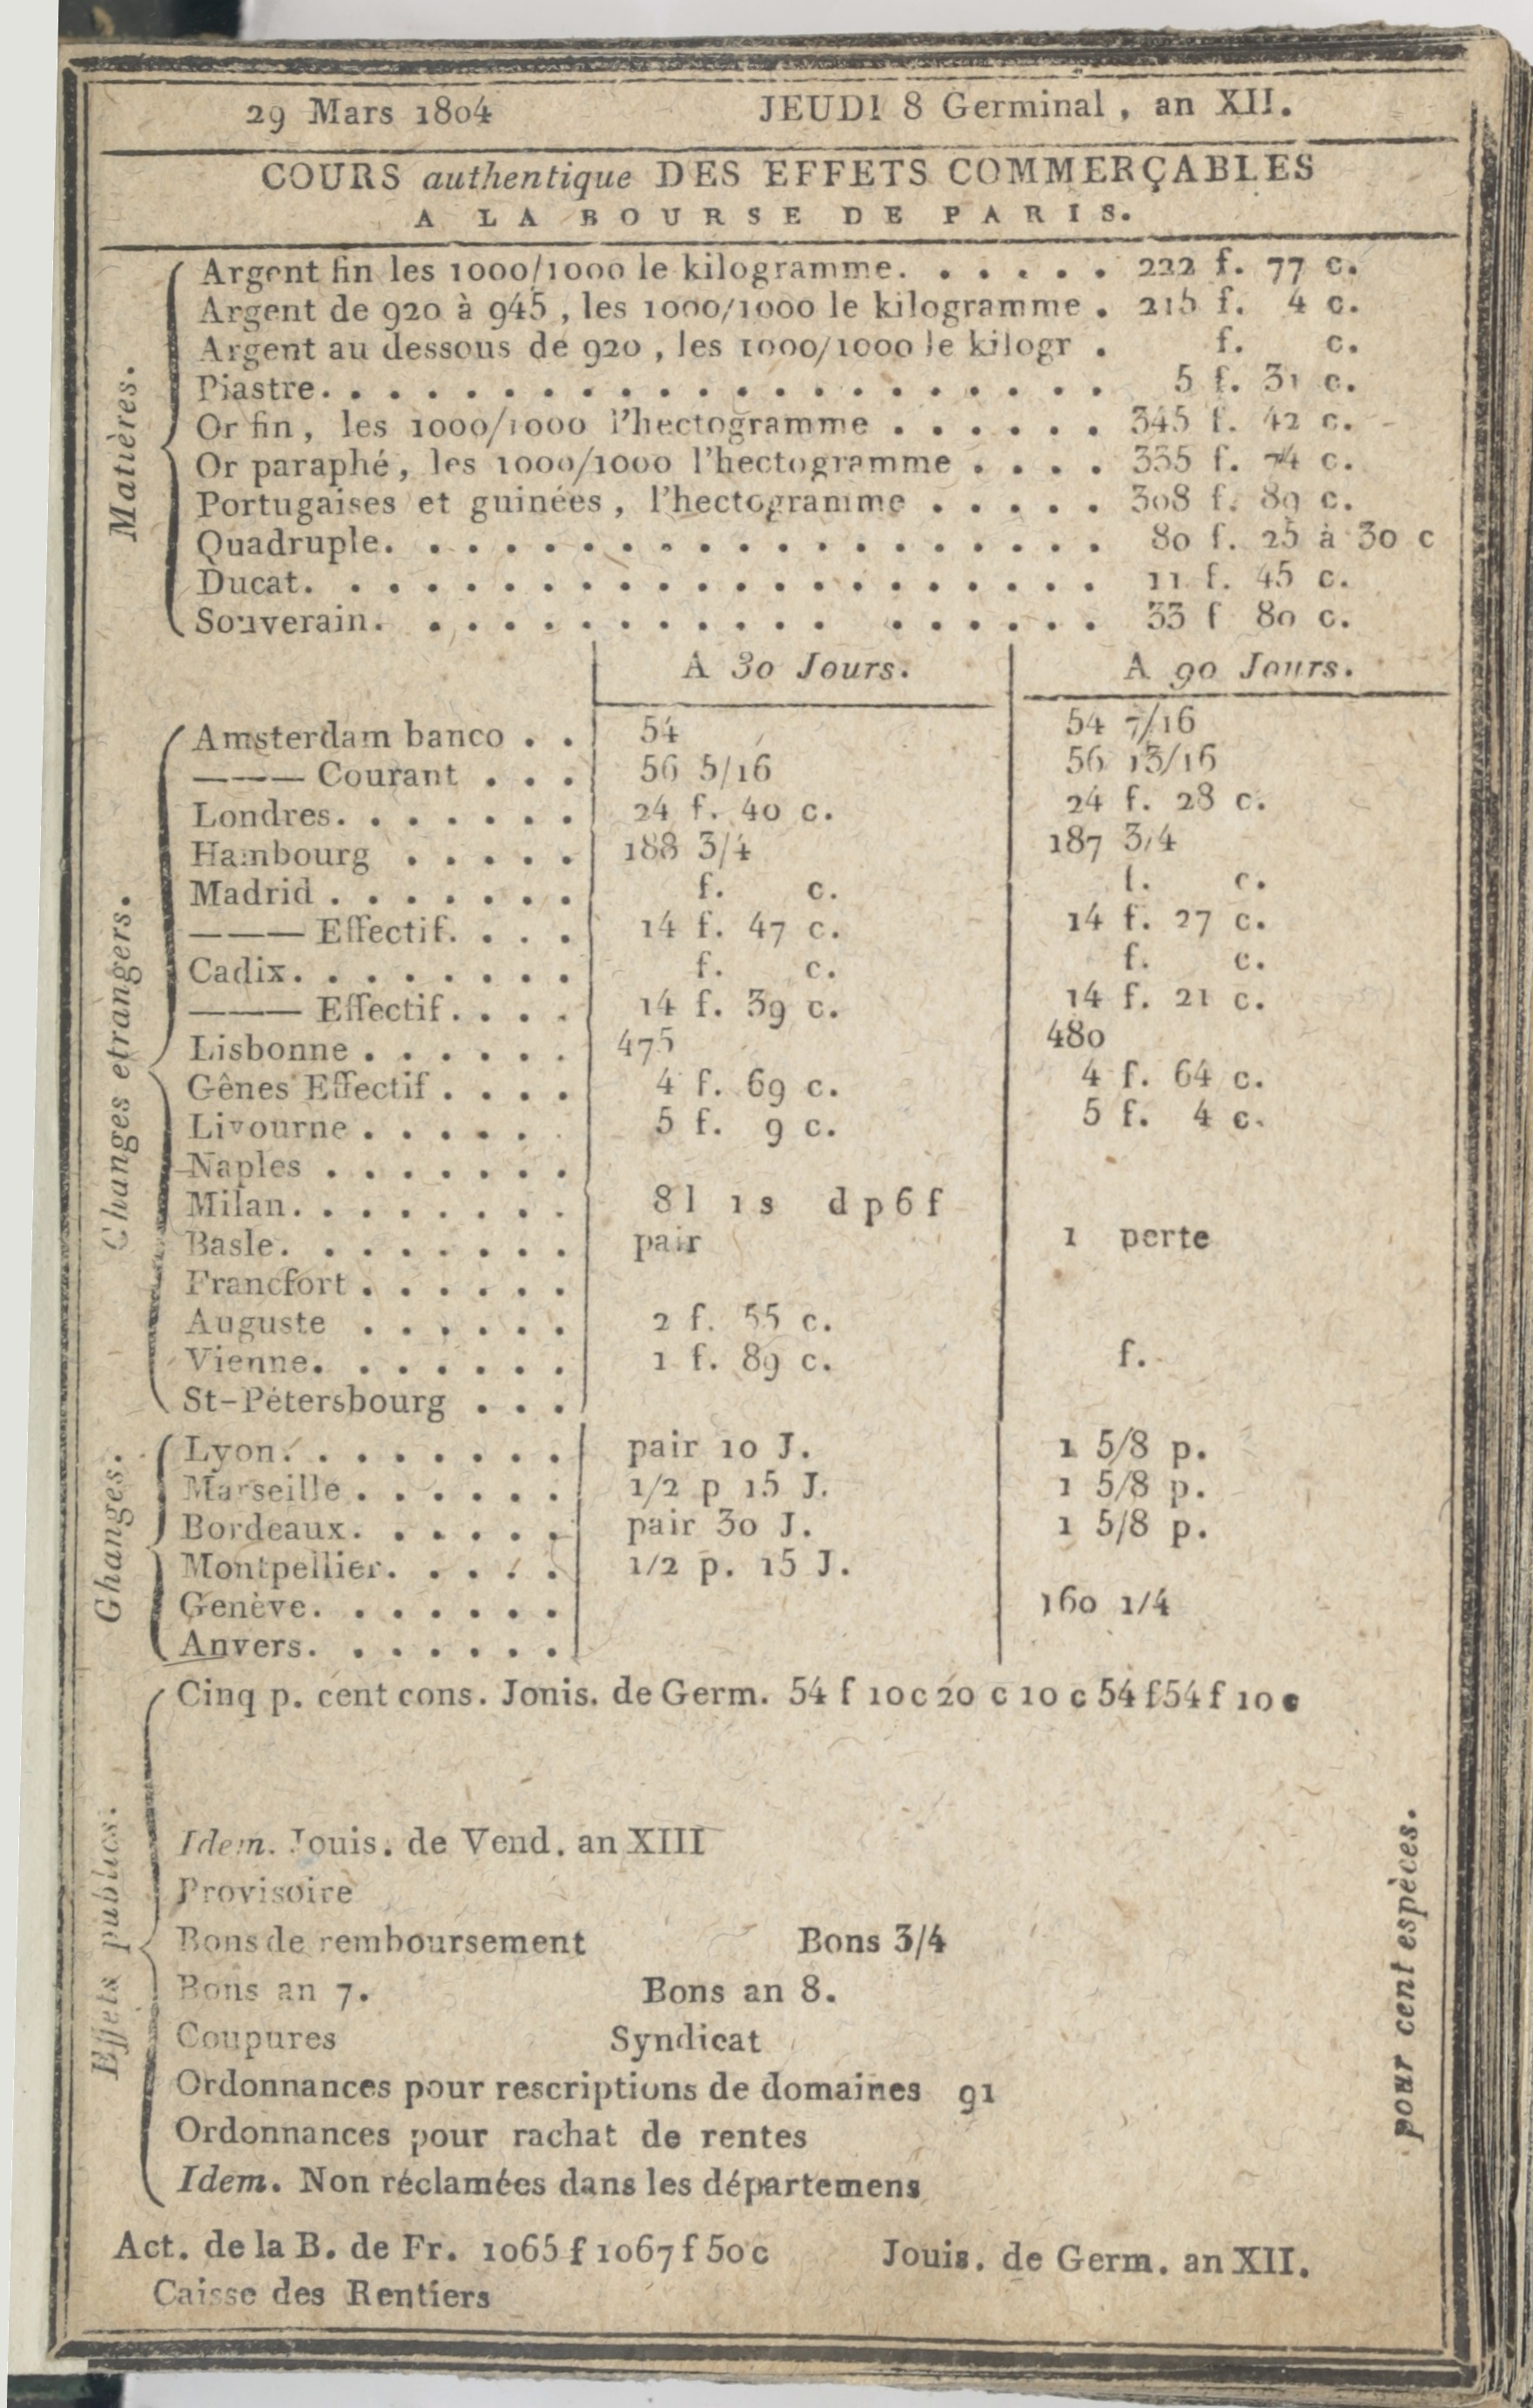 29 Mars 1804 JEUDI 8 Germinal, an XII.
COURS authentique DES EFFETS COMMERÇABLES
A LA BOURSE DE PARIS.
Matières.
Argent fin les 1000/1000 le kilogramme. . . . . . 222 f. 77 c.
Argent de 920 à 945, les 1000/1000 le kilogramme . 215 f. 4 c.
Argent au dessous de 920, les 1000/1000 le kilogr . f. c.
Piastre. . . . . . . . . . . . . . . . . . . . . 5 f. 31 c.
Or fin, les 1000/1000 l'hectogramme . . . . . . 345 f. 42 c.
Or paraphé, les 1000/1000 l'hectogramme . . . . 335 f. 74 c.
Portugaises et guinées, l'hectogramme . . . . . 308 f. 89 c.
Quadruple. . . . . . . . . . . . . . . . . . . . 80 f. 25 à 30 c
Ducat. . . . . . . . . . . . . . . . . . . . . . 11 f. 45 c.
Souverain. . . . . . . . . . . . . . . . . . . 33 f 80 c.
A 30 Jours. A 90 Jours.
Changes etrangers.
Amsterdam banco . . 54 54 7/16
——— Courant . . . 56 5/16 56 13/16
Londres. . . . . . . 24 f. 40 c. 24 f. 28 c.
Hambourg . . . . . 188 3/4 187 3/4
Madrid . . . . . . . f. c. f. c.
——— Effectif. . . . 14 f. 47 c. 14 f. 27 c.
Cadix. . . . . . . . f. c. f. c.
——— Effectif. . . . 14 f. 39 c. 14 f. 21 c.
Lisbonne . . . . . . 475 480
Gênes Effectif . . . . 4 f. 69 c. 4 f. 64 c.
Livourne . . . . . 5 f. 9 c. 5 f. 4 c.
Naples . . . . . . .
Milan. . . . . . . . 8 l 1 s d p 6 f
Basle. . . . . . . . pair 1 perte
Francfort . . . . . .
Auguste . . . . . . 2 f. 55 c.
Vienne. . . . . . . 1 f. 89 c. f.
St-Pétersbourg . . .
Ghanges.
Lyon. . . . . . . . pair 10 J. 1 5/8 p.
Marseille . . . . . . 1/2 p 15 J. 1 5/8 p.
Bordeaux. . . . . . pair 30 J. 1 5/8 p.
Montpellier. . . . . 1/2 p. 15 J.
Genève. . . . . . . 160 1/4
Anvers. . . . . . .
Effets publics.
Cinq p. cent cons. Jonis. de Germ. 54 f 10 c 20 c 10 c 54 f 54 f 10 c
Idem. Jouis. de Vend. an XIII
Provisoire
Bons de remboursement Bons 3/4
Bons an 7. Bons an 8.
Coupures Syndicat
Ordonnances pour rescriptions de domaines 91
Ordonnances pour rachat de rentes
Idem. Non réclamées dans les départemens
pour cent espèces.
Act. de la B. de Fr. 1065 f 1067 f 50 c Jouis. de Germ. an XII.
Caisse des Rentiers